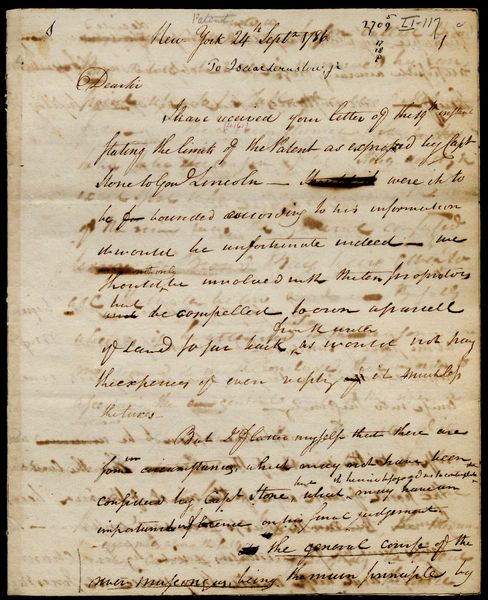 Patent
2709
II-117
New York 24th Sept 1786
1
To Isaac
Dear Sir
I have received your letter of the 19th instant
stating the limits of the Patent as expressed by Capt
Stone to Genl Lincoln — were it to
be bounded according to his information
it would be unfortunate indeed — we
should not only be involved with the ten proprietors
but be compelled to own a parcell
of land so far back from the water as would not pay
the expences of even it much less
the taxes
But I flatter myself that there are
some circumstances which may not have been
considered by Capt Stone, which may have an
important influence on his final judgement
the general course of the
river muscongus, being the main principle by